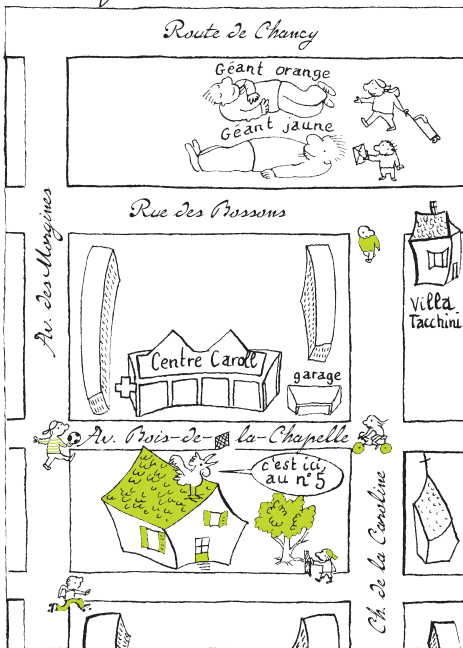 Route de Chancy
Géant orange
Géant jaune
Av. des Morgines
Rue des Bossons
Villa
Tacchini
Centre Caroll
garage
Av. Bois-de-la-Chapelle
c'est ici,
au n° 5
Ch. de la Caroline